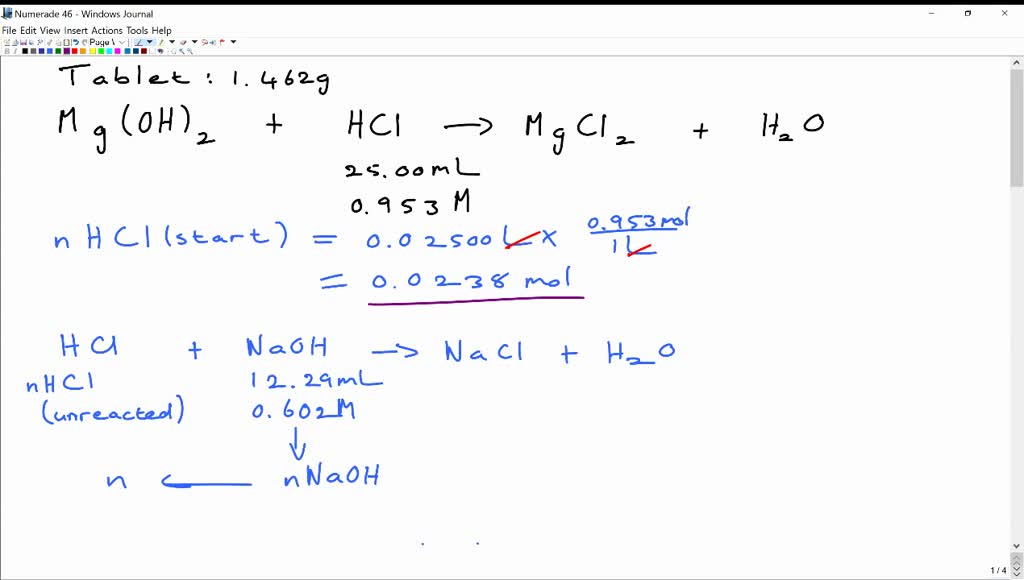 Numerade 46 - Windows Journal
File Edit View Insert Actions Tools Help
Page 1
Tablet : 1.462g
Mg(OH)₂ + HCl → MgCl₂ + H₂O
25.00mL
0.953 M
nHCl(start) = 0.02500 L × 0.953mol / 1L
= 0.0238 mol
HCl + NaOH → NaCl + H₂O
nHCl 12.29mL
(unreacted) 0.602M
↓
n ← nNaOH
1 / 4